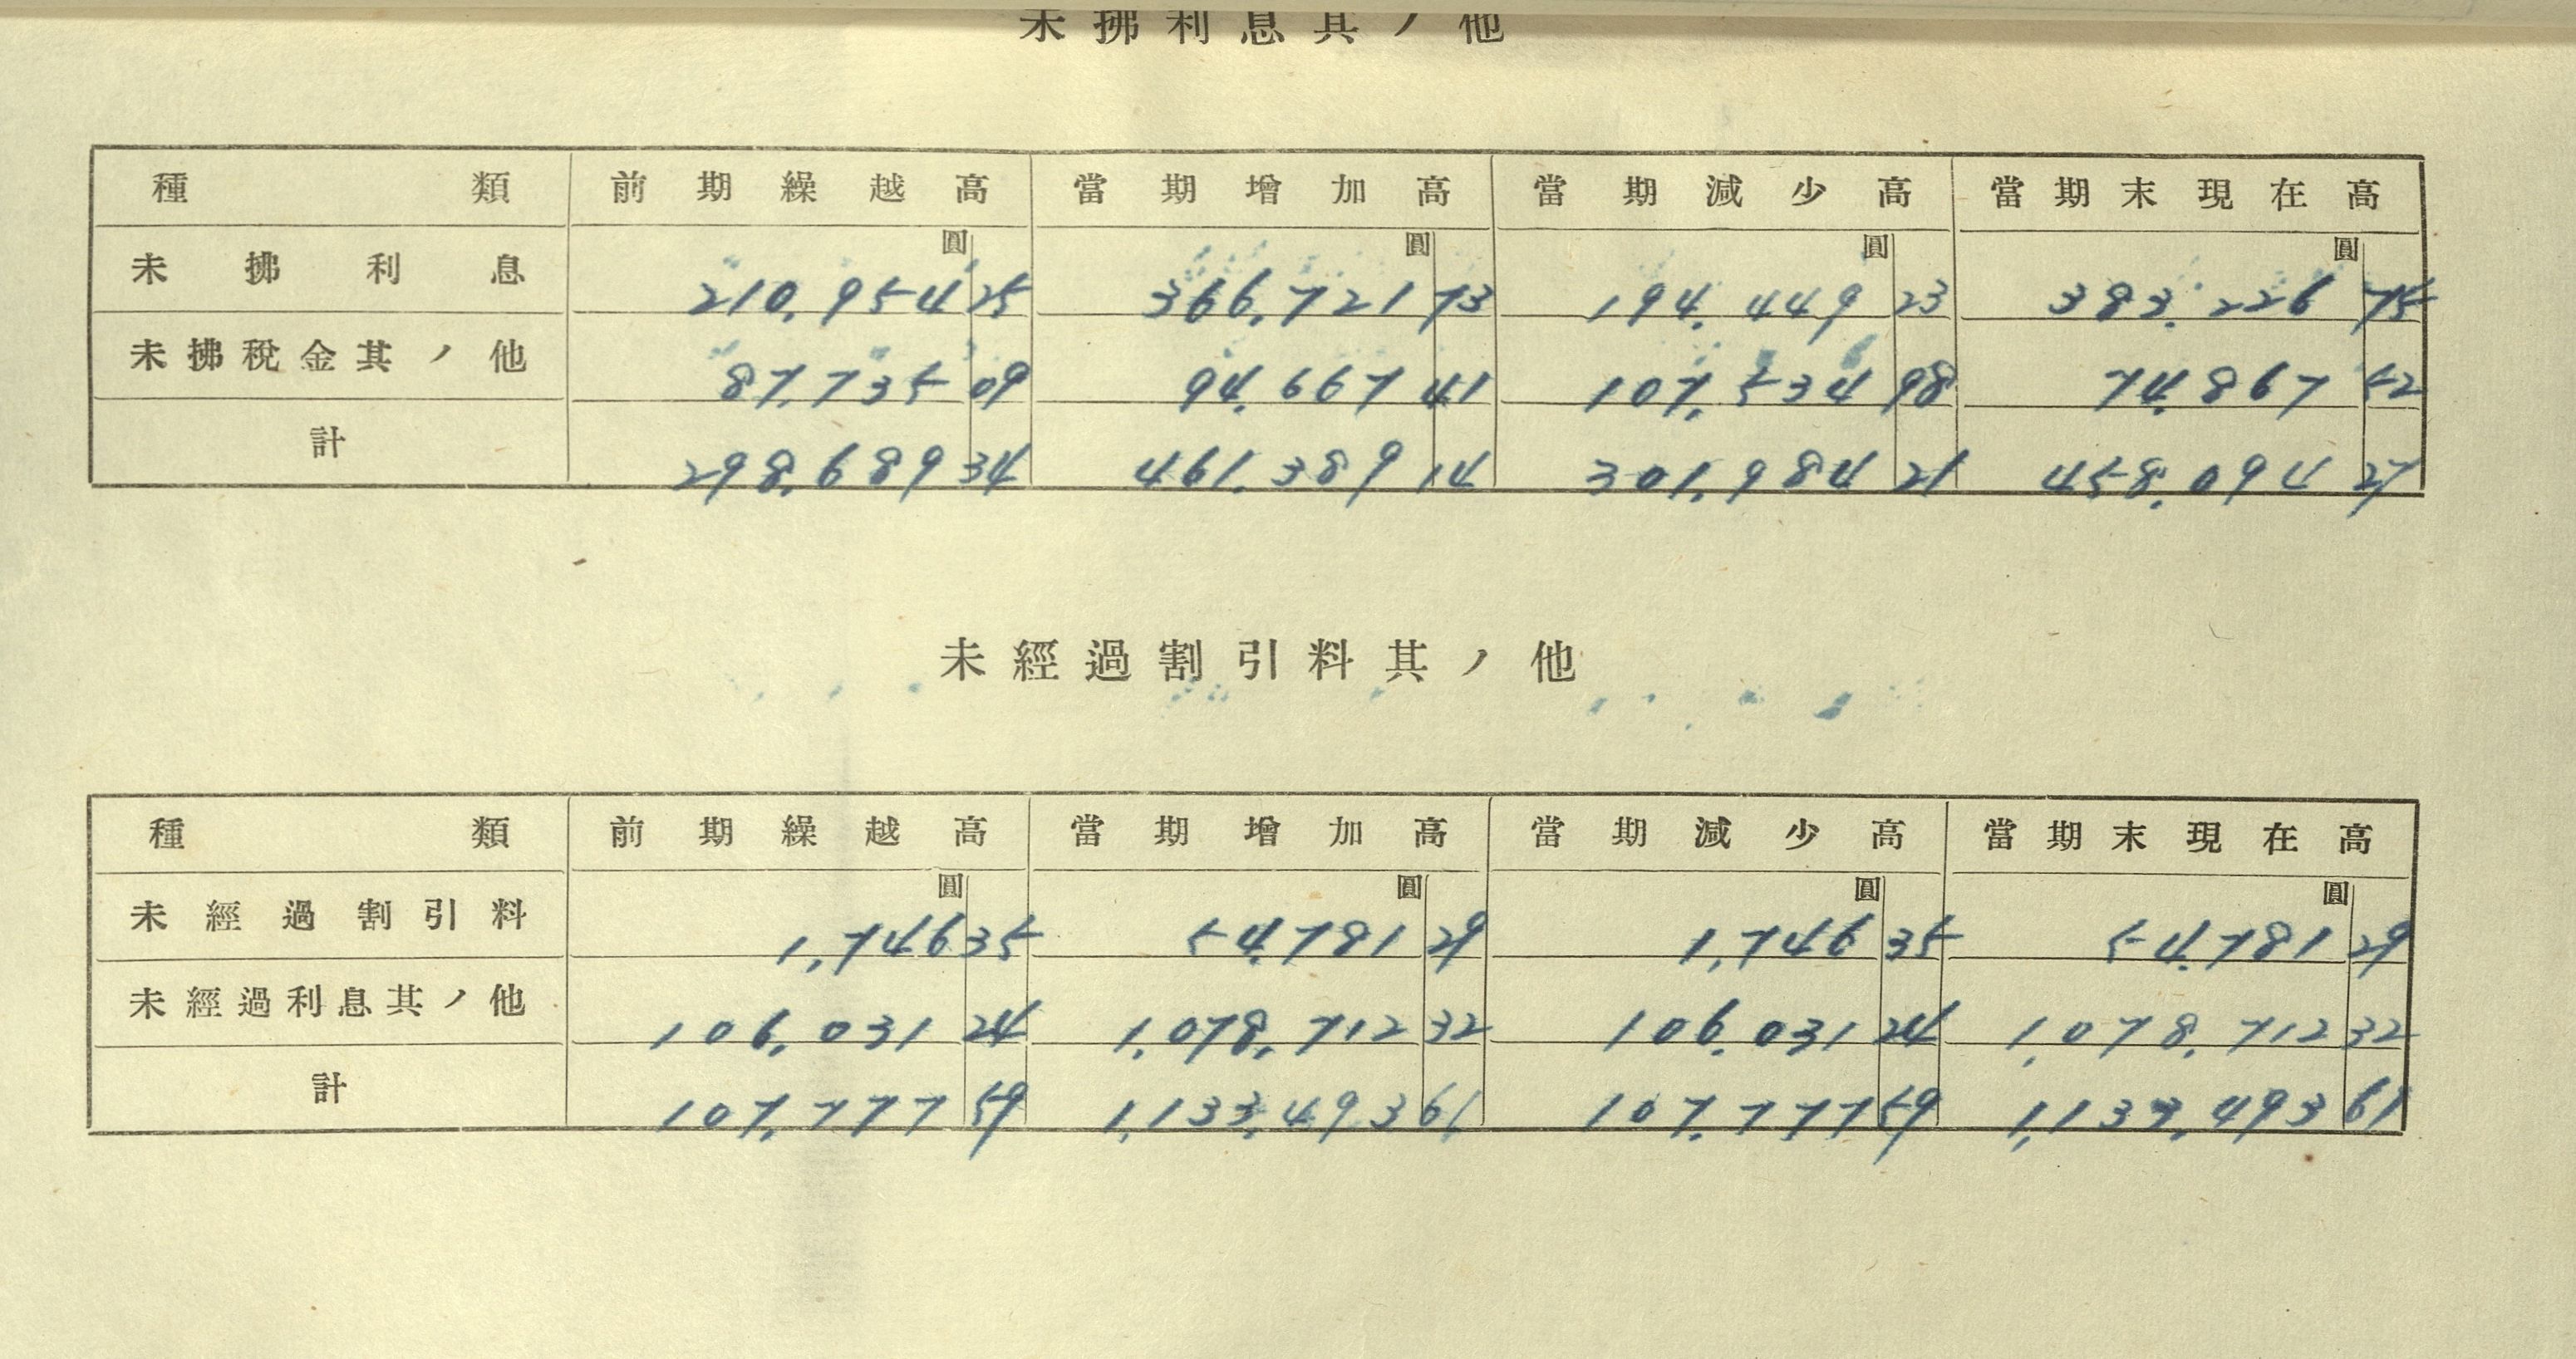 未拂利息其ノ他
種類 前期繰越高 當期增加高 當期減少高 當期末現在高
圓 圓 圓 圓
未拂利息 210,954 25 366,721 73 194,449 23 383,226 75
未拂稅金其ノ他 87,735 09 94,667 41 107,534 98 74,867 52
計 298,689 34 461,389 14 301,984 21 458,094 27
未經過割引料其ノ他
種類 前期繰越高 當期增加高 當期減少高 當期末現在高
圓 圓 圓 圓
未經過割引料 1,746 35 54,781 29 1,746 35 54,781 29
未經過利息其ノ他 106,031 24 1,078,712 32 106,031 24 1,078,712 32
計 107,777 59 1,133,493 61 107,777 59 1,133,493 61